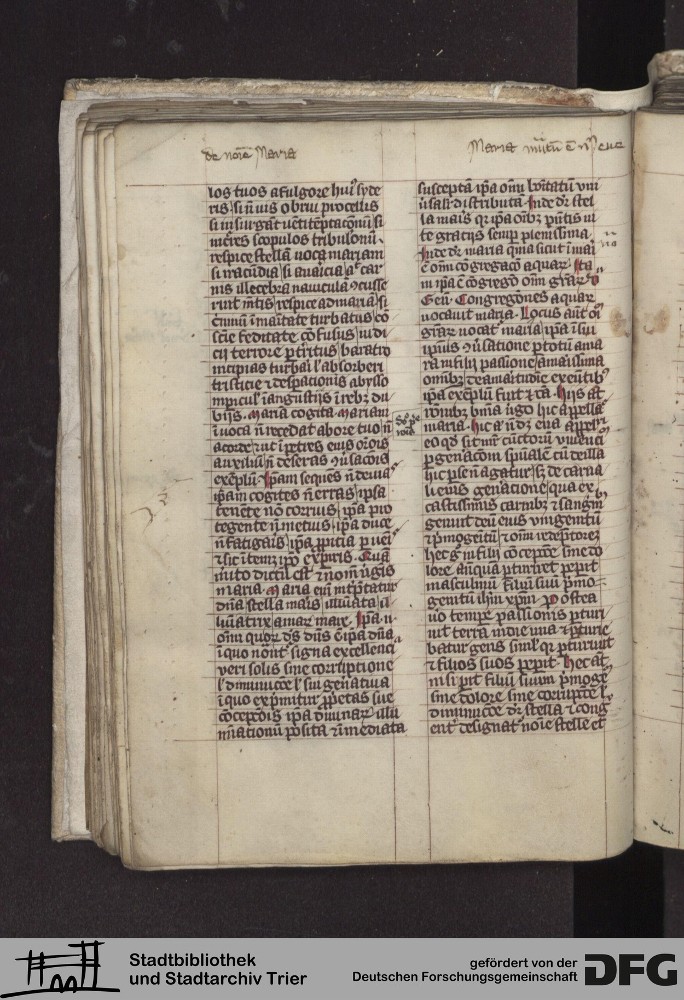 de noīe Maria
los tuos a fulgore huiꝰ syde
ris si n̄ uis obrui procellis
si insurgāt uēti tēptacōnū si
īcurres scopulos tribulonū
respice stellā uoca mariam
si iracūdia si auaricia aᵗ car
nis illecebra nauiculā ꝯcusse
rint mētis respice ad mariā si
c̄minū īmaītate turbatus cō
scīe feditate cōfusus iudi
cii terrore ꝑt̄ritus baratro
incipias turbari ł absorberi
tristicie ⁊ despationis abysso
in ꝑiculꝭ ī angustiis ī rebꝫ du
biis. Maria cogita Mariam
īuoca n̄ recedat ab ore tuo n̄
a corde ⁊ ut īpetres eius or̄ois
auxiliū n̄ deseras ꝯūsacōis
exēplū. Ipam sequēs n̄ deuia
ip̄am cogites n̄ erras ip̄sa
tenēte nō corruis ip̄a pro
tegente n̄ metuis ip̄a duce
n̄ fatigaris ip̄a ꝓpitia ꝑueī
⁊ sic ī temetipō exꝑiris. Quā
īmito dictū est ⁊ nom̄ ūgis
maria. Maria eīm īterp̄tatur
dn̄a stella maīs illūiata ił
luīatrix amar mare. Ip̄a n
om̄i quoꝝ ds̄ dn̄s ē ip̄a dn̄a
ī quo not̄ signa excellenci
veri solis sine corruptione
ł dīminucōe ł sui genatiua
ī quo exp̄mitur ꝓpetas sue
cōcepcōis ip̄a diuinaꝝ illu
mīationū posita ⁊ īmediata
Maria
susceptā ip̄a om̄i bōitatū uni
ū̄sali distributā. Inde dr̄ stel
la maīs qꝛ ip̄a oībꝫ ꝑūtis in
te gratijs semꝑ plenissima
Inde dr̄ maria q̄ina sicut ī maī
ē om̄i cōgregaco aquaꝝ. Ita
in ip̄a ē cōgregō om̄i grāꝝ
Geñ. Congregōnes aquaꝝ
uocauit maria. Locus aut̄ oī
grāꝝ uocat̄ maria ip̄a ī sui
ip̄uis ꝯūsatione ꝑ totū ama
ra in filij passione amarissima
omībꝫ de amaritudīe exeūtibꝰ
ip̄a exēplū fuit ⁊ cā. Hijs at
nōmībꝫ bn̄ia ūgo hic appella
maria. Hic a n̄ dꝫ eua appelī
eo qd̄ sit mr̄ cūctoꝝ uiuenci
ꝑ genacōm spūalē cū de illa
hic p̄sen̄ agatur sꝫ de carna
li eius genatione qua ex
castissimis carnibꝫ ⁊ sangīn
genuit deū eius unigenitū
⁊ p̄mogeitū ⁊ om̄i redēptoreꝫ
hec gͦ in filij cōcepcōe sine do
lore anqua ꝑturiret peꝑit
masculinū filiū suū p̄mo
genitū ihm̄ xp̄m. Postea
ūo tempe passionis ꝑturi
uit terra in die una ⁊ ꝑturie
batur gens simł qꝛ ꝑturiuit
⁊ filios suos peꝑit. Hec at̄
in si ꝑit filiū suum p̄mogē
sine dolore sine corrupcōe ł
diminucōe dr̄ stella ⁊ cong
ent̄ designat̄ noīe stelle et
Stadtbibliothek
und Stadtarchiv Trier
gefördert von der
Deutschen Forschungsgemeinschaft
DFG